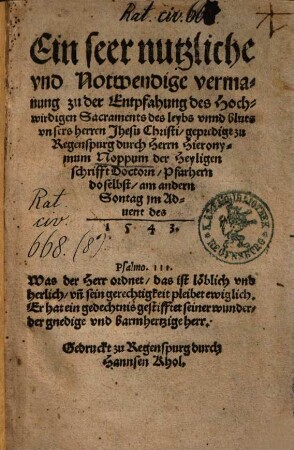 Rat. civ. 668
Ein seer nutzliche
vnd Notwendige verma-
nung zu der Entpfahung des Hoch-
wirdigen Sacraments des leybs vnnd bluts
vnsers herren Jhesu Christi/ gepredigt zu
Regenspurg durch Herrn Hierony-
mum Noppum der Heyligen
schrifft Doctorn/ Pfarhern
doselbst/ am andern
Sontag im Ad-
uent des
1543.
Rat.
civ.
668. (8°)
Psalmo. 111.
Was der Herr ordnet/ das ist löblich vnd
herlich/ vñ sein gerechtigkeit pleibet ewiglich.
Er hat ein gedechtnis gestifftet seiner wunder/
der gnedige vnd barmhertzige herr.
Gedruckt zu Regenspurg durch
Hannsen Khol.